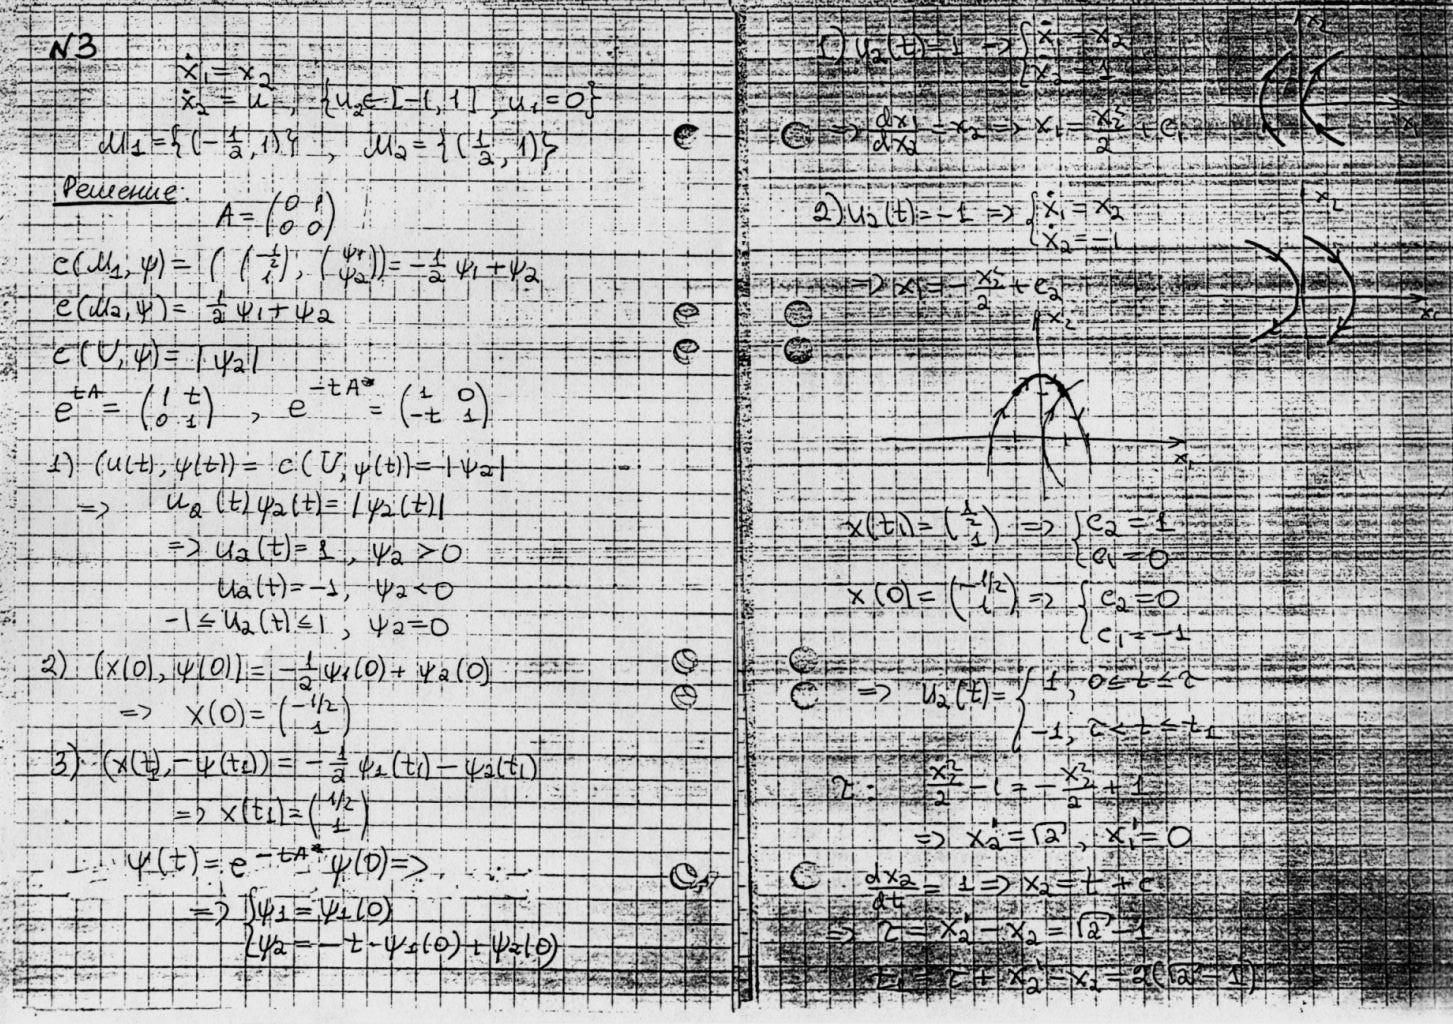 N3
ẋ₁ = x₂
ẋ₂ = u , {u₂ ∈ [-1, 1], u₁ = 0}
M₁ = {(-1/2, 1)} , M₂ = {(1/2, 1)}
Решение:
A = (0 1; 0 0)
c(M₁, ψ) = ((-1/2; 1), (ψ₁; ψ₂)) = -1/2 ψ₁ + ψ₂
c(M₂, ψ) = 1/2 ψ₁ + ψ₂
c(U, ψ) = |ψ₂|
e^{tA} = (1 t; 0 1) , e^{-tA*} = (1 0; -t 1)
1) (u(t), ψ(t)) = c(U, ψ(t)) = |ψ₂|
=> u₂(t)ψ₂(t) = |ψ₂(t)|
=> u₂(t) = 1 , ψ₂ > 0
u₂(t) = -1, ψ₂ < 0
-1 ≤ u₂(t) ≤ 1 , ψ₂ = 0
2) (x(0), ψ(0)) = -1/2 ψ₁(0) + ψ₂(0)
=> x(0) = (-1/2; 1)
3) (x(t₁), -ψ(t₁)) = -1/2 ψ₁(t₁) - ψ₂(t₁)
=> x(t₁) = (1/2; 1)
ψ(t) = e^{-tA*} ψ(0) =>
=> {ψ₁ = ψ₁(0)
{ψ₂ = -t·ψ₁(0) + ψ₂(0)
1) u₂(t) = 1 => {ẋ₁ = x₂
{ẋ₂ = 1
x₂
x₁
=> dx₁/dx₂ = x₂ => x₁ = x₂²/2 + c₁
2) u₂(t) = -1 => {ẋ₁ = x₂
{ẋ₂ = -1
x₂
x₁
=> x₁ = -x₂²/2 + c₂
x₂
x₁
x(t₁) = (1/2; 1) => {c₂ = 1
{c₁ = 0
x(0) = (-1/2; 1) => {c₂ = 0
{c₁ = -1
=> u₂(t) = {1, 0 ≤ t ≤ τ
{-1, τ < t ≤ t₁
τ: x₂²/2 - 1 = -x₂²/2 + 1
=> x₂' = √2, x₁' = 0
dx₂/dt = 1 => x₂ = t + c
=> τ = x₂' - x₂ = √2 - 1
t₁ = τ + x₂' - x₂ = 2(√2 - 1)